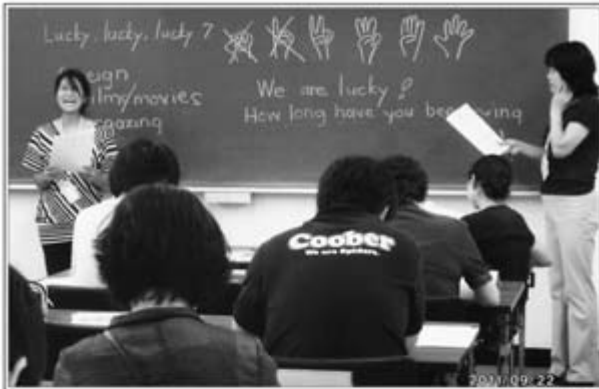 Lucky, lucky, lucky ?
eign
ilms/movies
gazing
We are lucky !
How long have you be ing
Coober
We are
2011/09/22